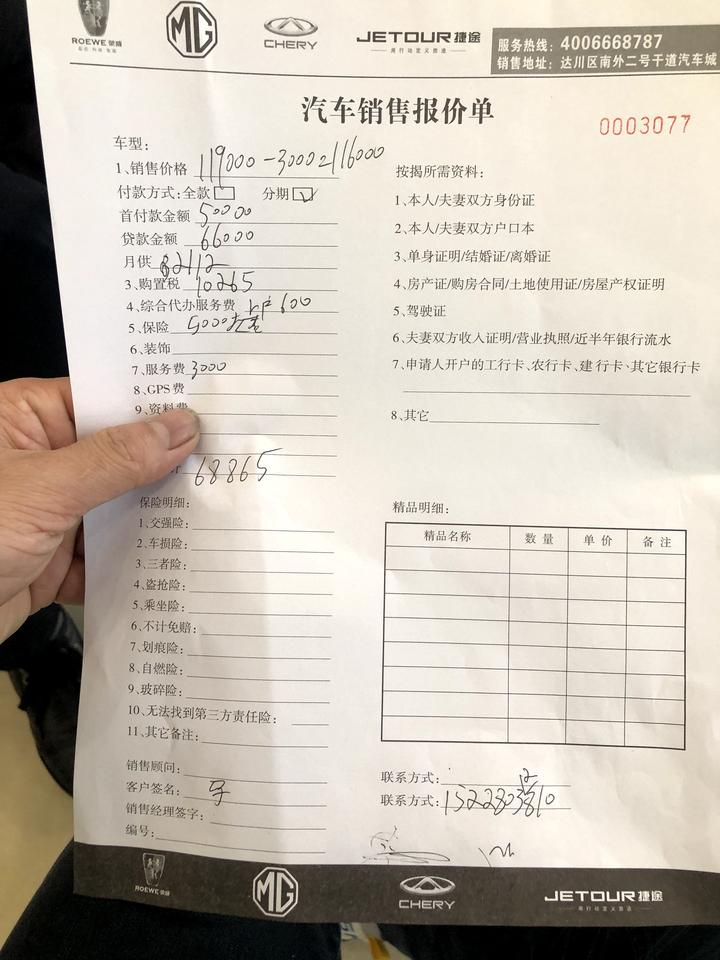 ROEWE 荣威
MG
CHERY
JETOUR 捷途
服务热线：4006668787
销售地址：达川区南外二号干道汽车城
汽车销售报价单
0003077
车型：
1、销售价格 119000-3000=116000
付款方式：全款 分期
首付款金额 50000
贷款金额 66000
月供
3、购置税 10265
4、综合代办服务费 上户600
5、保险 5000左右
6、装饰
7、服务费 3000
8、GPS费
9、资料费
68865
按揭所需资料：
1、本人/夫妻双方身份证
2、本人/夫妻双方户口本
3、单身证明/结婚证/离婚证
4、房产证/购房合同/土地使用证/房屋产权证明
5、驾驶证
6、夫妻双方收入证明/营业执照/近半年银行流水
7、申请人开户的工行卡、农行卡、建行卡、其它银行卡
8、其它
保险明细：
1、交强险：
2、车损险：
3、三者险：
4、盗抢险：
5、乘坐险：
6、不计免赔：
7、划痕险：
8、自燃险：
9、玻碎险：
10、无法找到第三方责任险：
11、其它备注：
精品明细：
精品名称 数量 单价 备注
销售顾问：
客户签名：
销售经理签字：
编号：
联系方式：
联系方式：
ROEWE 荣威
MG
CHERY
JETOUR 捷途